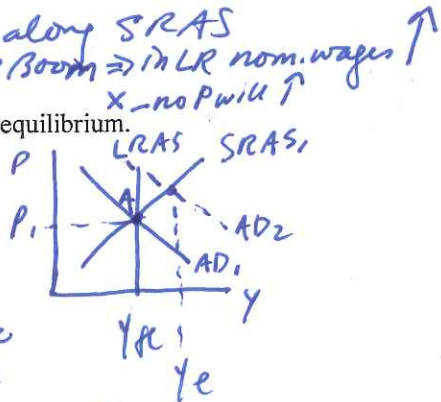 along SRAS
Boom ⇒ in LR nom. wages ↑
x_no P will ↑
equilibrium.
P LRAS SRAS₁
A
P₁ AD₂
AD₁
Y
Yfe
Ye